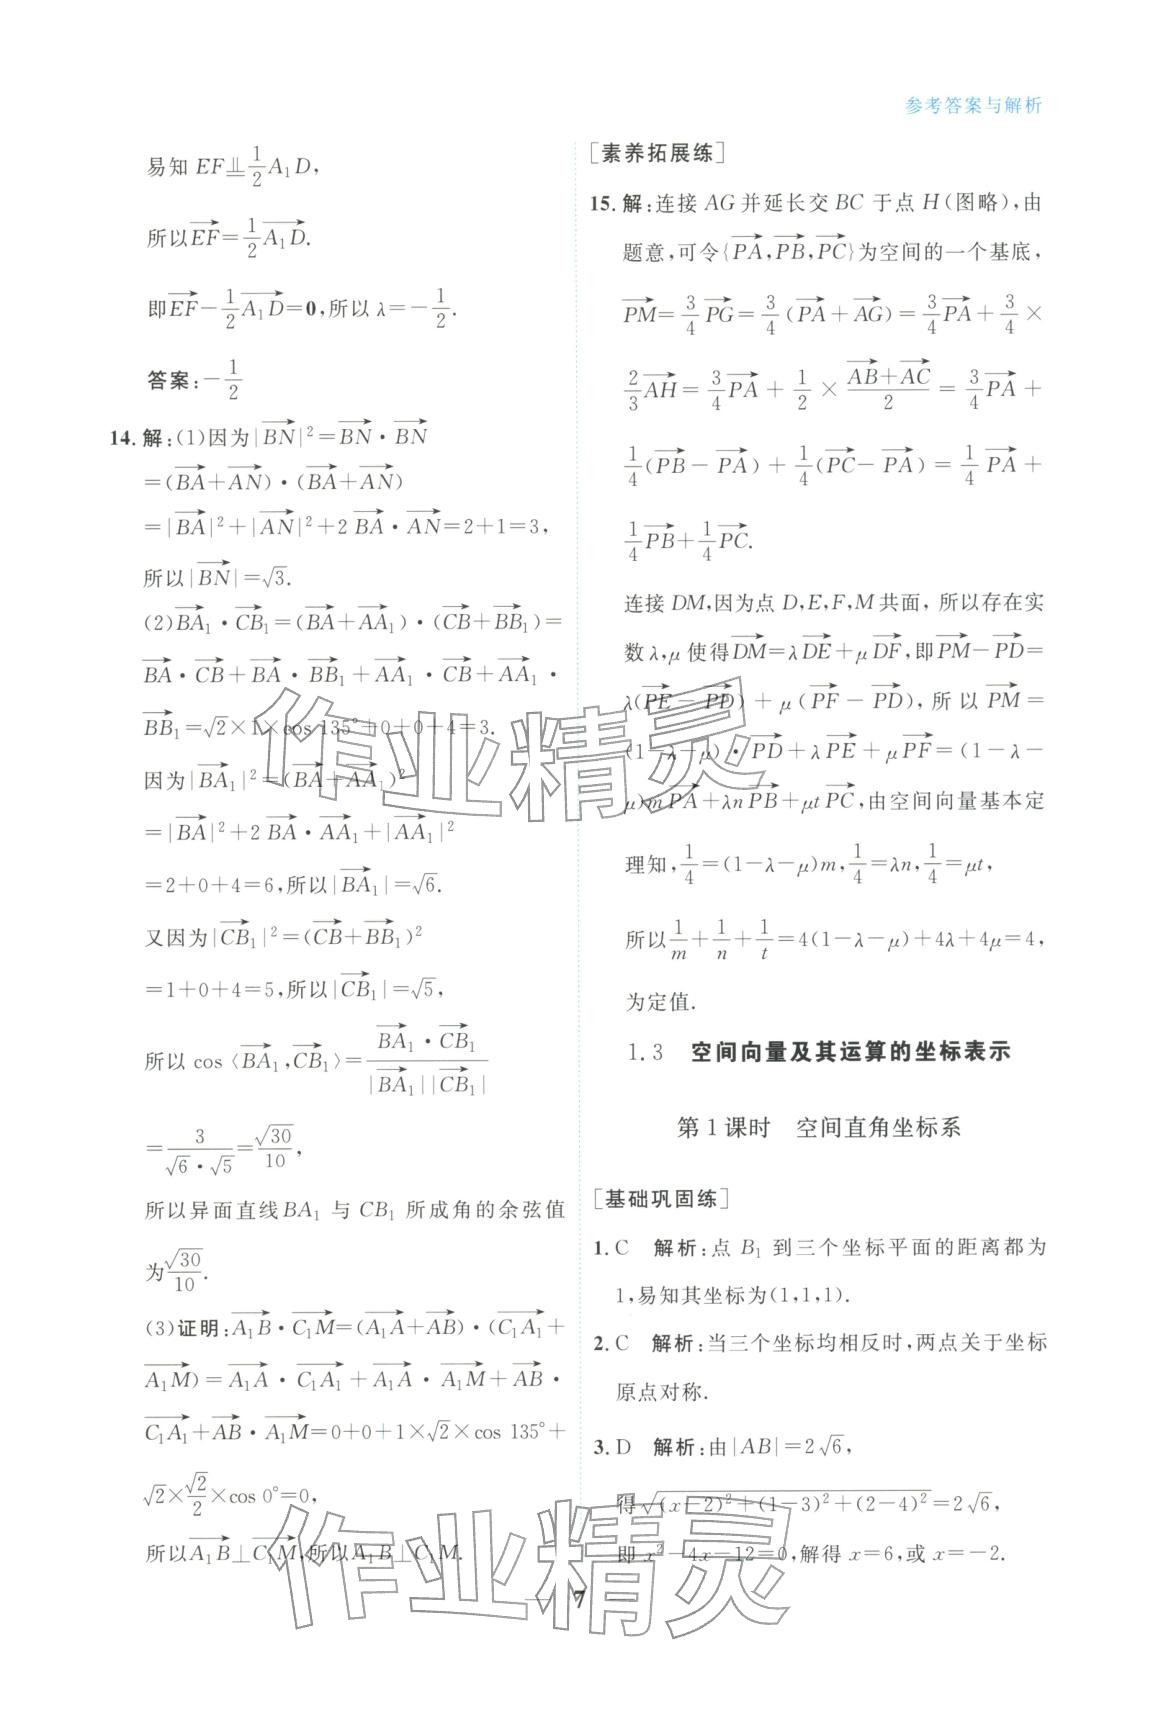 参考答案与解析
易知 EF⫫1/2 A₁D,
所以EF→=1/2 A₁D→.
即EF→-1/2 A₁D→=0,所以 λ=-1/2.
答案:-1/2
14.解:(1)因为|BN→|²=BN→·BN→
=(BA→+AN→)·(BA→+AN→)
=|BA→|²+|AN→|²+2BA→·AN→=2+1=3,
所以|BN→|=√3.
(2)BA₁→·CB₁→=(BA→+AA₁→)·(CB→+BB₁→)=
BA→·CB→+BA→·BB₁→+AA₁→·CB→+AA₁→·
BB₁→=√2×1×cos 135°+0+0+4=3.
因为|BA₁→|²=(BA→+AA₁→)²
=|BA→|²+2BA→·AA₁→+|AA₁→|²
=2+0+4=6,所以|BA₁→|=√6.
又因为|CB₁→|²=(CB→+BB₁→)²
=1+0+4=5,所以|CB₁→|=√5,
所以 cos〈BA₁→,CB₁→〉=BA₁→·CB₁→/|BA₁→||CB₁→|
=3/(√6·√5)=√30/10,
所以异面直线BA₁ 与 CB₁ 所成角的余弦值
为√30/10.
(3)证明:A₁B→·C₁M→=(A₁A→+AB→)·(C₁A₁→+
A₁M→)=A₁A→·C₁A₁→+A₁A→·A₁M→+AB→·
C₁A₁→+AB→·A₁M→=0+0+1×√2×cos 135°+
√2×√2/2×cos 0°=0,
所以A₁B→⊥C₁M→,所以A₁B⊥C₁M.
[素养拓展练]
15.解:连接 AG 并延长交 BC 于点 H(图略),由
题意,可令{PA→,PB→,PC→}为空间的一个基底,
PM→=3/4 PG→=3/4(PA→+AG→)=3/4 PA→+3/4×
2/3 AH→=3/4 PA→+1/2×(AB→+AC→)/2=3/4 PA→+
1/4(PB→-PA→)+1/4(PC→-PA→)=1/4 PA→+
1/4 PB→+1/4 PC→.
连接 DM,因为点 D,E,F,M 共面,所以存在实
数 λ,μ 使得DM→=λDE→+μDF→,即PM→-PD→=
λ(PE→-PD→)+μ(PF→-PD→),所以PM→=
(1-λ-μ)·PD→+λPE→+μPF→=(1-λ-
μ)mPA→+λnPB→+μtPC→,由空间向量基本定
理知,1/4=(1-λ-μ)m,1/4=λn,1/4=μt,
所以1/m+1/n+1/t=4(1-λ-μ)+4λ+4μ=4,
为定值.
1.3 空间向量及其运算的坐标表示
第1课时 空间直角坐标系
[基础巩固练]
1.C 解析:点 B₁ 到三个坐标平面的距离都为
1,易知其坐标为(1,1,1).
2.C 解析:当三个坐标均相反时,两点关于坐标
原点对称.
3.D 解析:由|AB|=2√6,
得√((x-2)²+(1-3)²+(2-4)²)=2√6,
即 x²-4x-12=0,解得 x=6,或 x=-2.
7
作业精灵
作业精灵